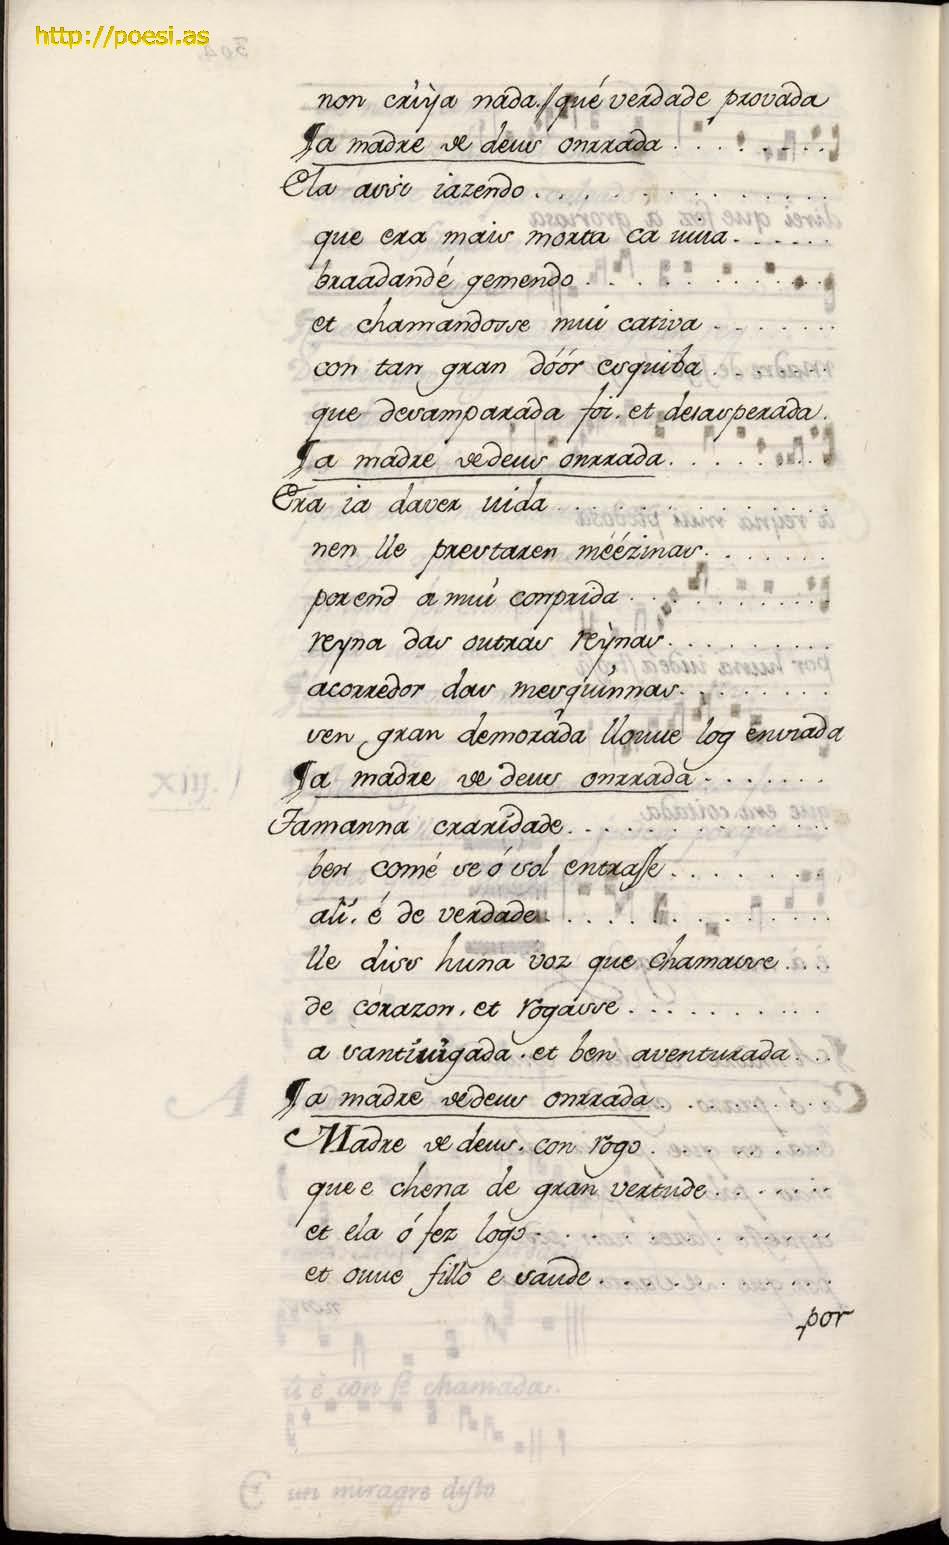 http://poesi.as
non criia nada. // qué verdade provada
¶ a madre de deus onrrada . . . . . . .
Ela assi iazendo . . . . . . . . . . .
que era mais morta ca uiua . . . . . .
braadand é gemendo . . . . . . . . . .
et chamandosse mui cativa . . . . . .
con tan gran dóór esquiba . . . . . .
que desamparada foi. et desasperada.
¶ a madre de deus onrrada . . . . . . .
Era ia daver uida . . . . . . . . . . .
nen lle prestaren méézinas . . . . . .
porend á mui conprida . . . . . . . .
reyna das outras reynas . . . . . . .
acorredor das mesquinnas . . . . . .
ven gran demorada lloune log enviada
¶ a madre de deus onrrada . . . . . .
Tamanna craridade . . . . . . . . . .
ben comé se ó sol entrasse . . . . . .
ali. é de verdade . . . . . . . . . .
lle diss huna voz que chamasse . . .
de corazon. et rogasse . . . . . . . .
a santiuigada. et ben aventurada. . .
¶ a madre de deus onrrada . . . . . .
Madre de deus. con rogo . . . . . . .
que e chena de gran vertude . . . . .
et ela ó fez logo . . . . . . . . . .
et ouue fillo e saude . . . . . . . .
por